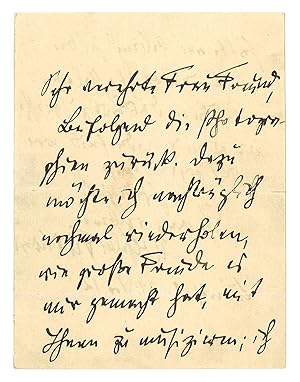 Sehr verehrte Frau Freund,
Beifolgend die Photogra-
phien zurück. Dazu
möchte ich nachträglich
nochmal wiederholen,
wie große Freude es
mir gemacht hat, mit
Ihnen zu musizieren; ich